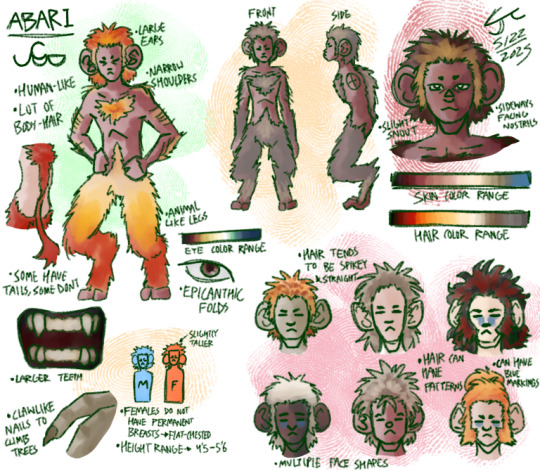 ABARI
•HUMAN-LIKE
•LOT OF
BODY-HAIR
•LARGE
EARS
•NARROW
SHOULDERS
•ANIMAL
LIKE LEGS
•SOME HAVE
TAILS, SOME DONT
FRONT
SIDE
5/22
2025
•SLIGHT
SNOUT
•SIDEWAYS
FACING
NOSTRILS
SKIN COLOR RANGE
HAIR COLOR RANGE
EYE COLOR RANGE
•EPICANTHIC
FOLDS
•LARGER TEETH
•CLAWLIKE
NAILS TO
CLIMB
TREES
SLIGHTLY
TALLER
M
F
•FEMALES DO NOT
HAVE PERMANENT
BREASTS→FLAT-CHESTED
•HEIGHT RANGE→ 4'5-5'6
•HAIR TENDS
TO BE SPIKEY
& STRAIGHT
•HAIR CAN
HAVE
PATTERNS
•CAN HAVE
BLUE
MARKINGS
•MULTIPLE FACE SHAPES